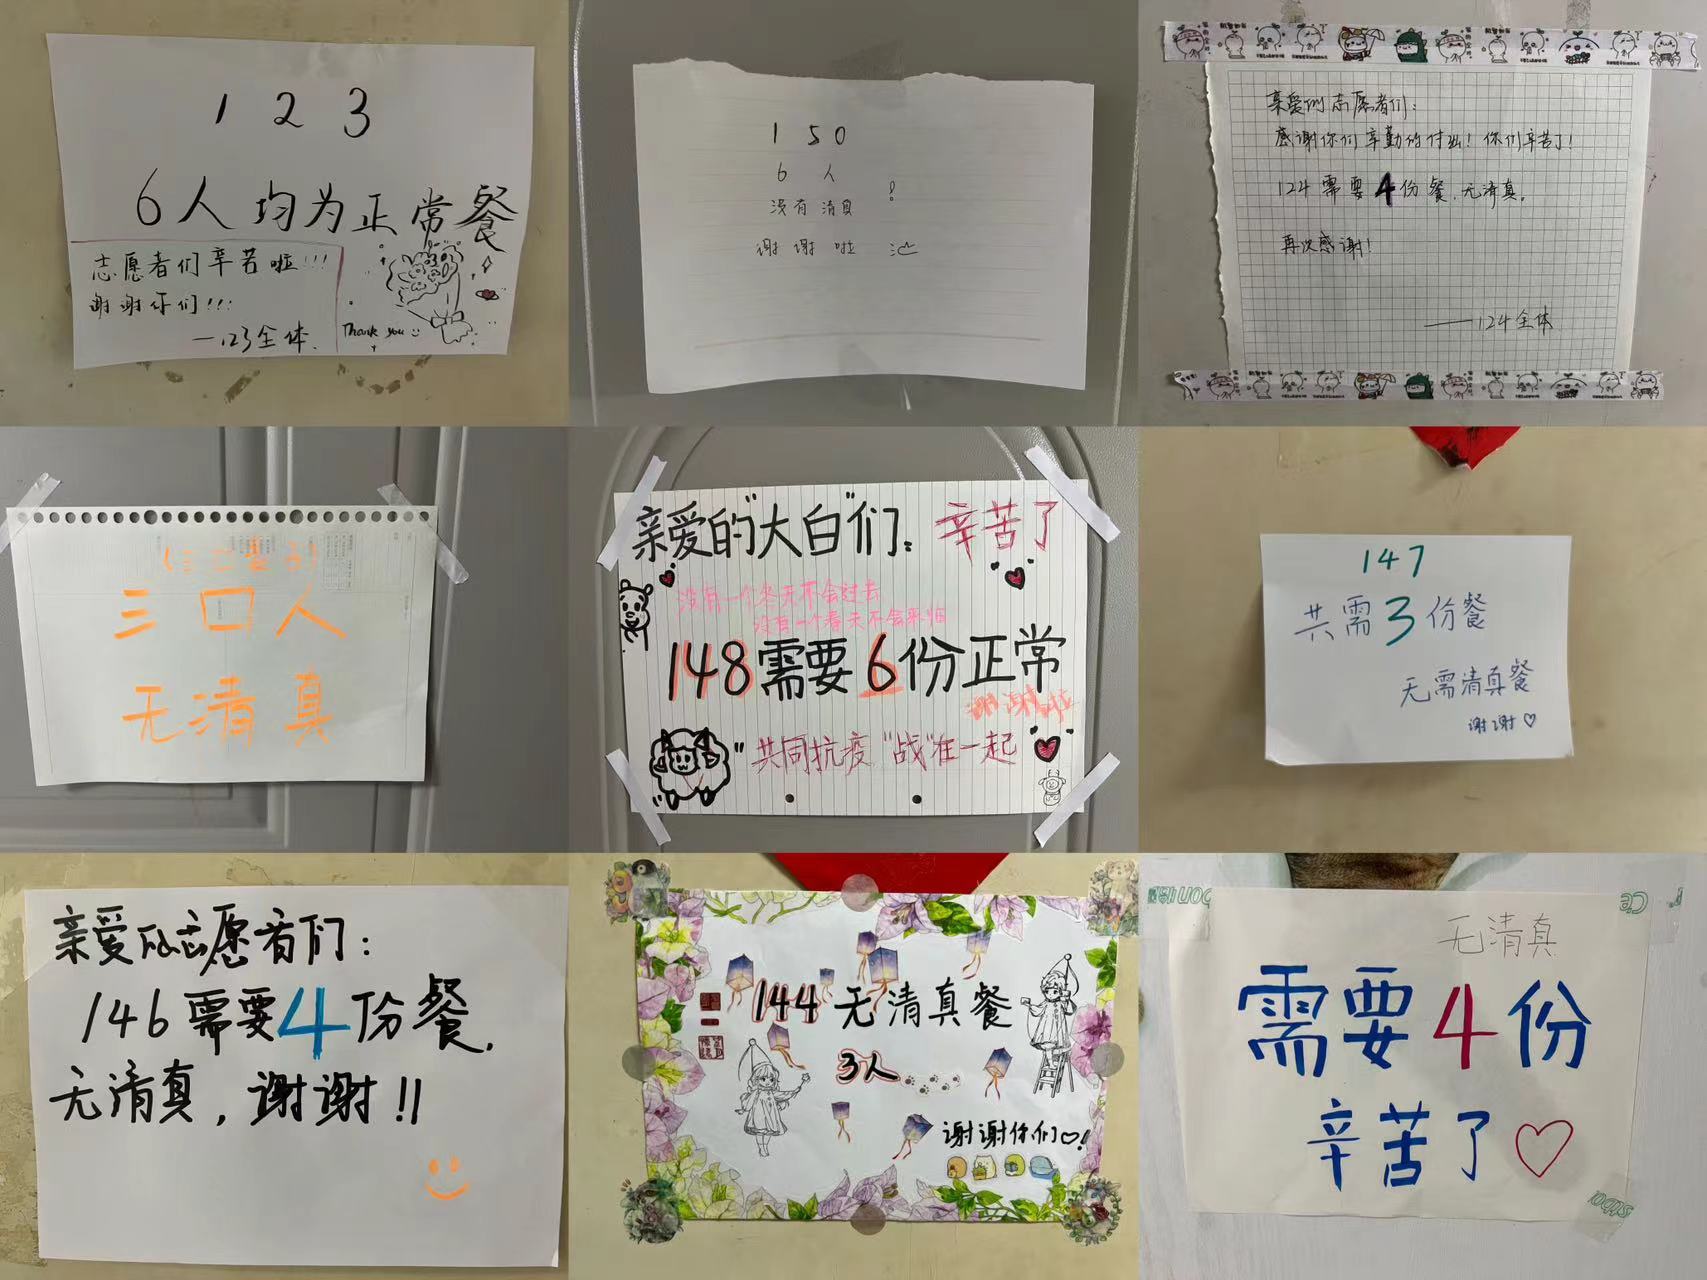 1 2 3
6人均为正常餐
志愿者们辛苦啦!!!
谢谢你们!!!
—123全体.
Thank you
1 5 0
6 人
没有清真 !
谢谢啦
亲爱的志愿者们:
感谢你们辛勤的付出! 你们辛苦了!
124需要4份餐,无清真。
再次感谢!
——124全体
三口人
无清真
亲爱的"大白"们: 辛苦了
没有一个冬天不会过去
没有一个春天不会来临
148需要6份正常
谢谢啦
"共同抗疫 "战"在一起
147
共需3份餐
无需清真餐
谢谢♡
亲爱的志愿者们:
146需要4份餐.
无清真,谢谢!!
144无清真餐
3人
谢谢你们♡!
无清真
需要4份
辛苦了♡